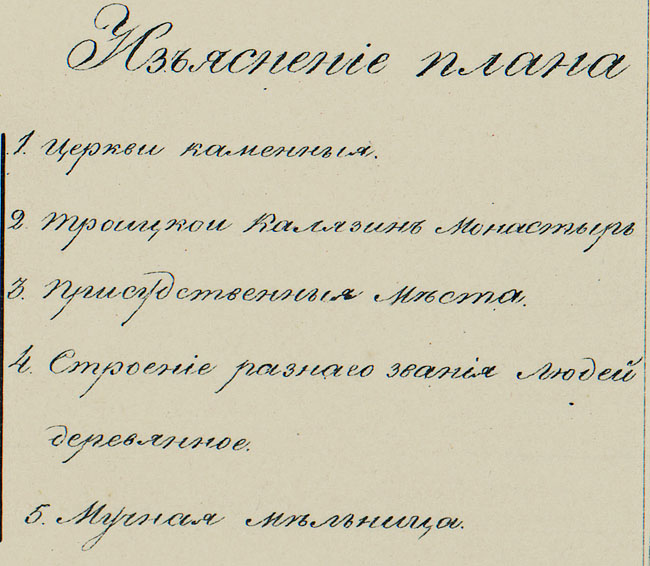 Изъясненіе плана
1. Церкви каменныя.
2. Троицкои Калязинъ Монастырь
3. Присудственныя мѣста.
4. Строеніе разнаго званія людей
деревянное.
5. Мучная мѣльница.